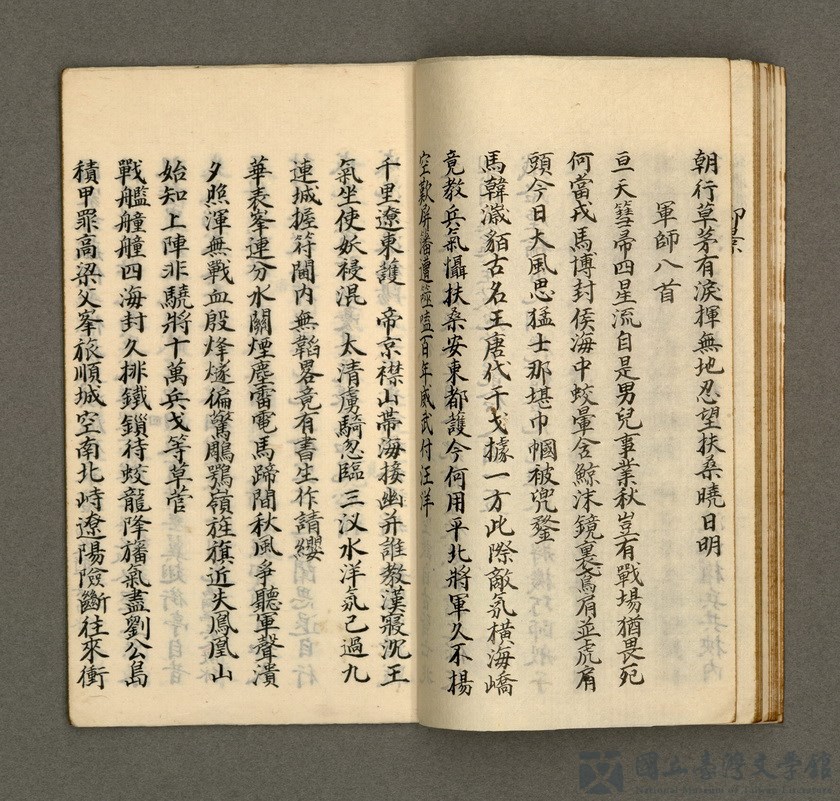 朝行草茅有淚揮無地忍望扶桑曉日明
軍師八首
亘天篲帚四星流自是男兒事業秋豈有戰場猶畏死
何當戎馬博封侯海中蛟暈含鯨沫鏡裏鳶肩並虎肩
頭今日大風思猛士那堪巾幗被兜鍪
馬韓濊貊古名王唐代干戈據一方此際敵氛橫海嶠
竟教兵氣懾扶桑安東都護今何用平北將軍久不揚
空歎屏藩遭噬嗑百年威武付汪洋
千里遼東護 帝京襟山帶海接幽并誰教漢寢沈王
氣坐使妖祲混 太清虜騎忽臨三汊水洋氛已過九
連城握符閫内無韜畧竟有書生作請纓
華表峯連分水關煙塵雷電馬蹄間秋風爭聽軍聲潰
夕照渾無戰血殷烽燧偏驚鵰鶚嶺旌旗近失鳳凰山
始知上陣非驍將十萬兵戈等草菅
戰艦艟艟四海封久排鐵鎖待蛟龍降旛氣盡劉公島
積甲罪高梁父峯旅順城空南北峙遼陽險斷往來衝
國立臺灣文學館
National Museum of Taiwan Literature